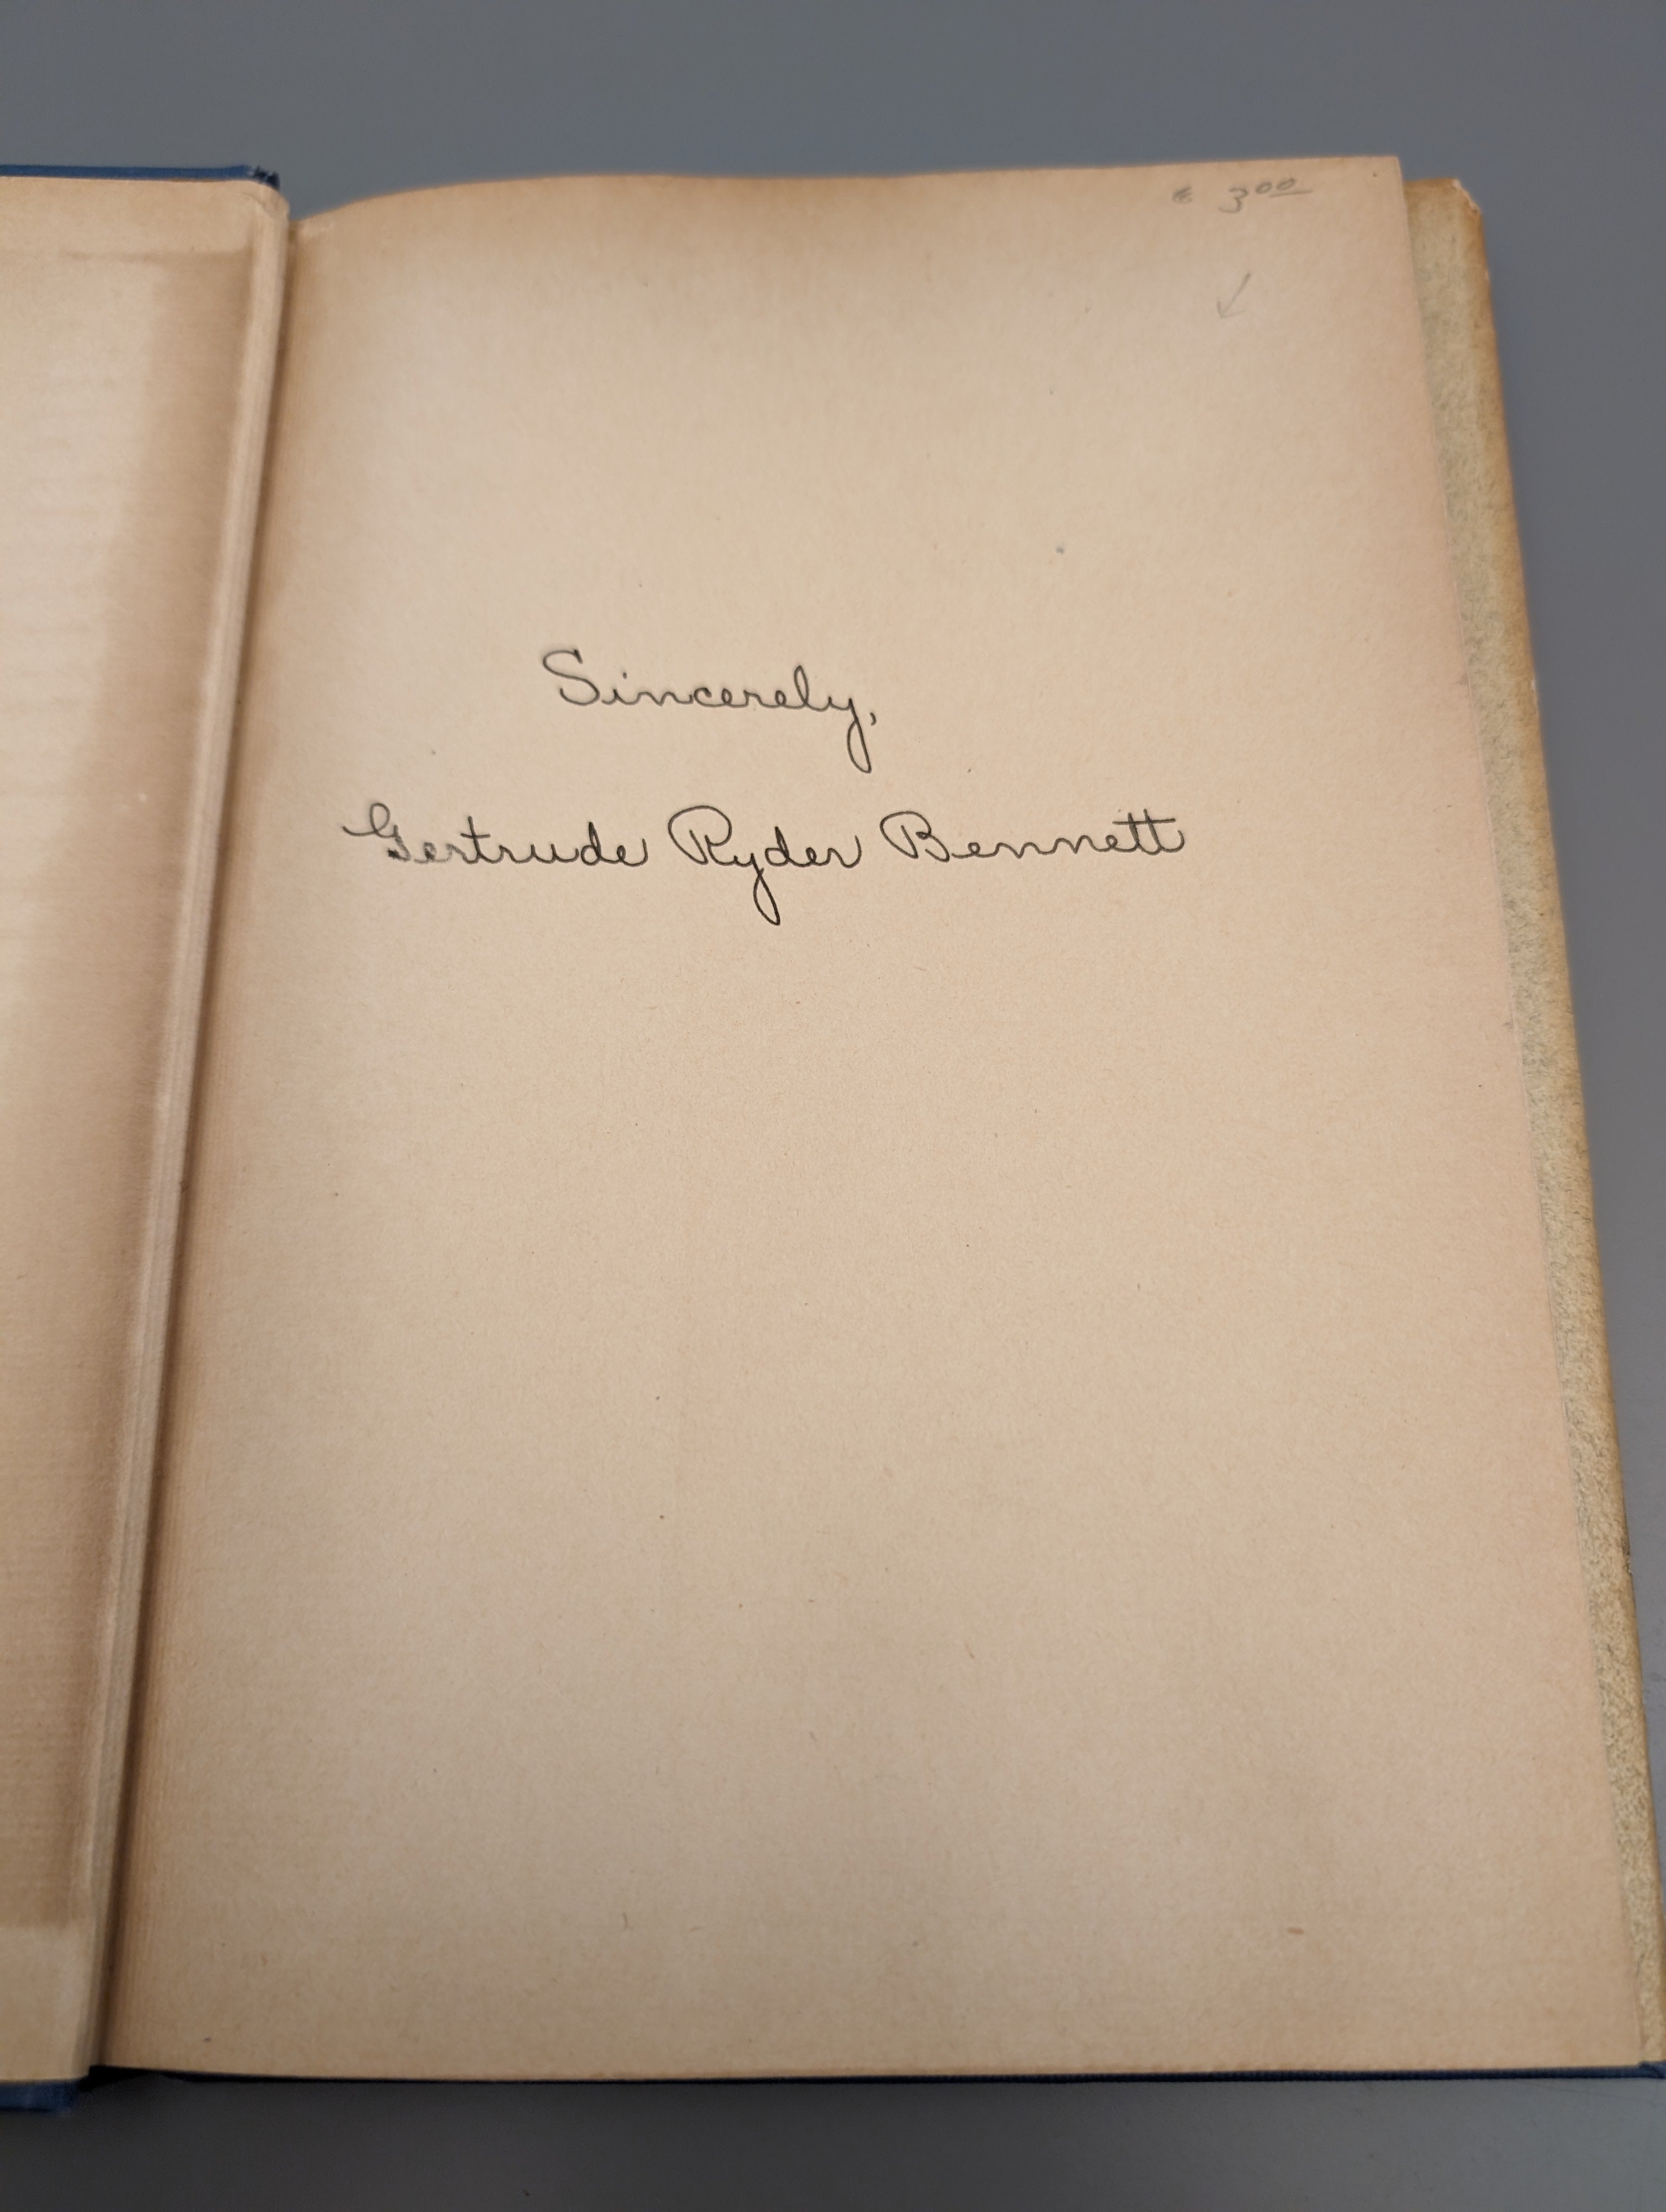 3⁰⁰
Sincerely,
Gertrude Ryder Bennett